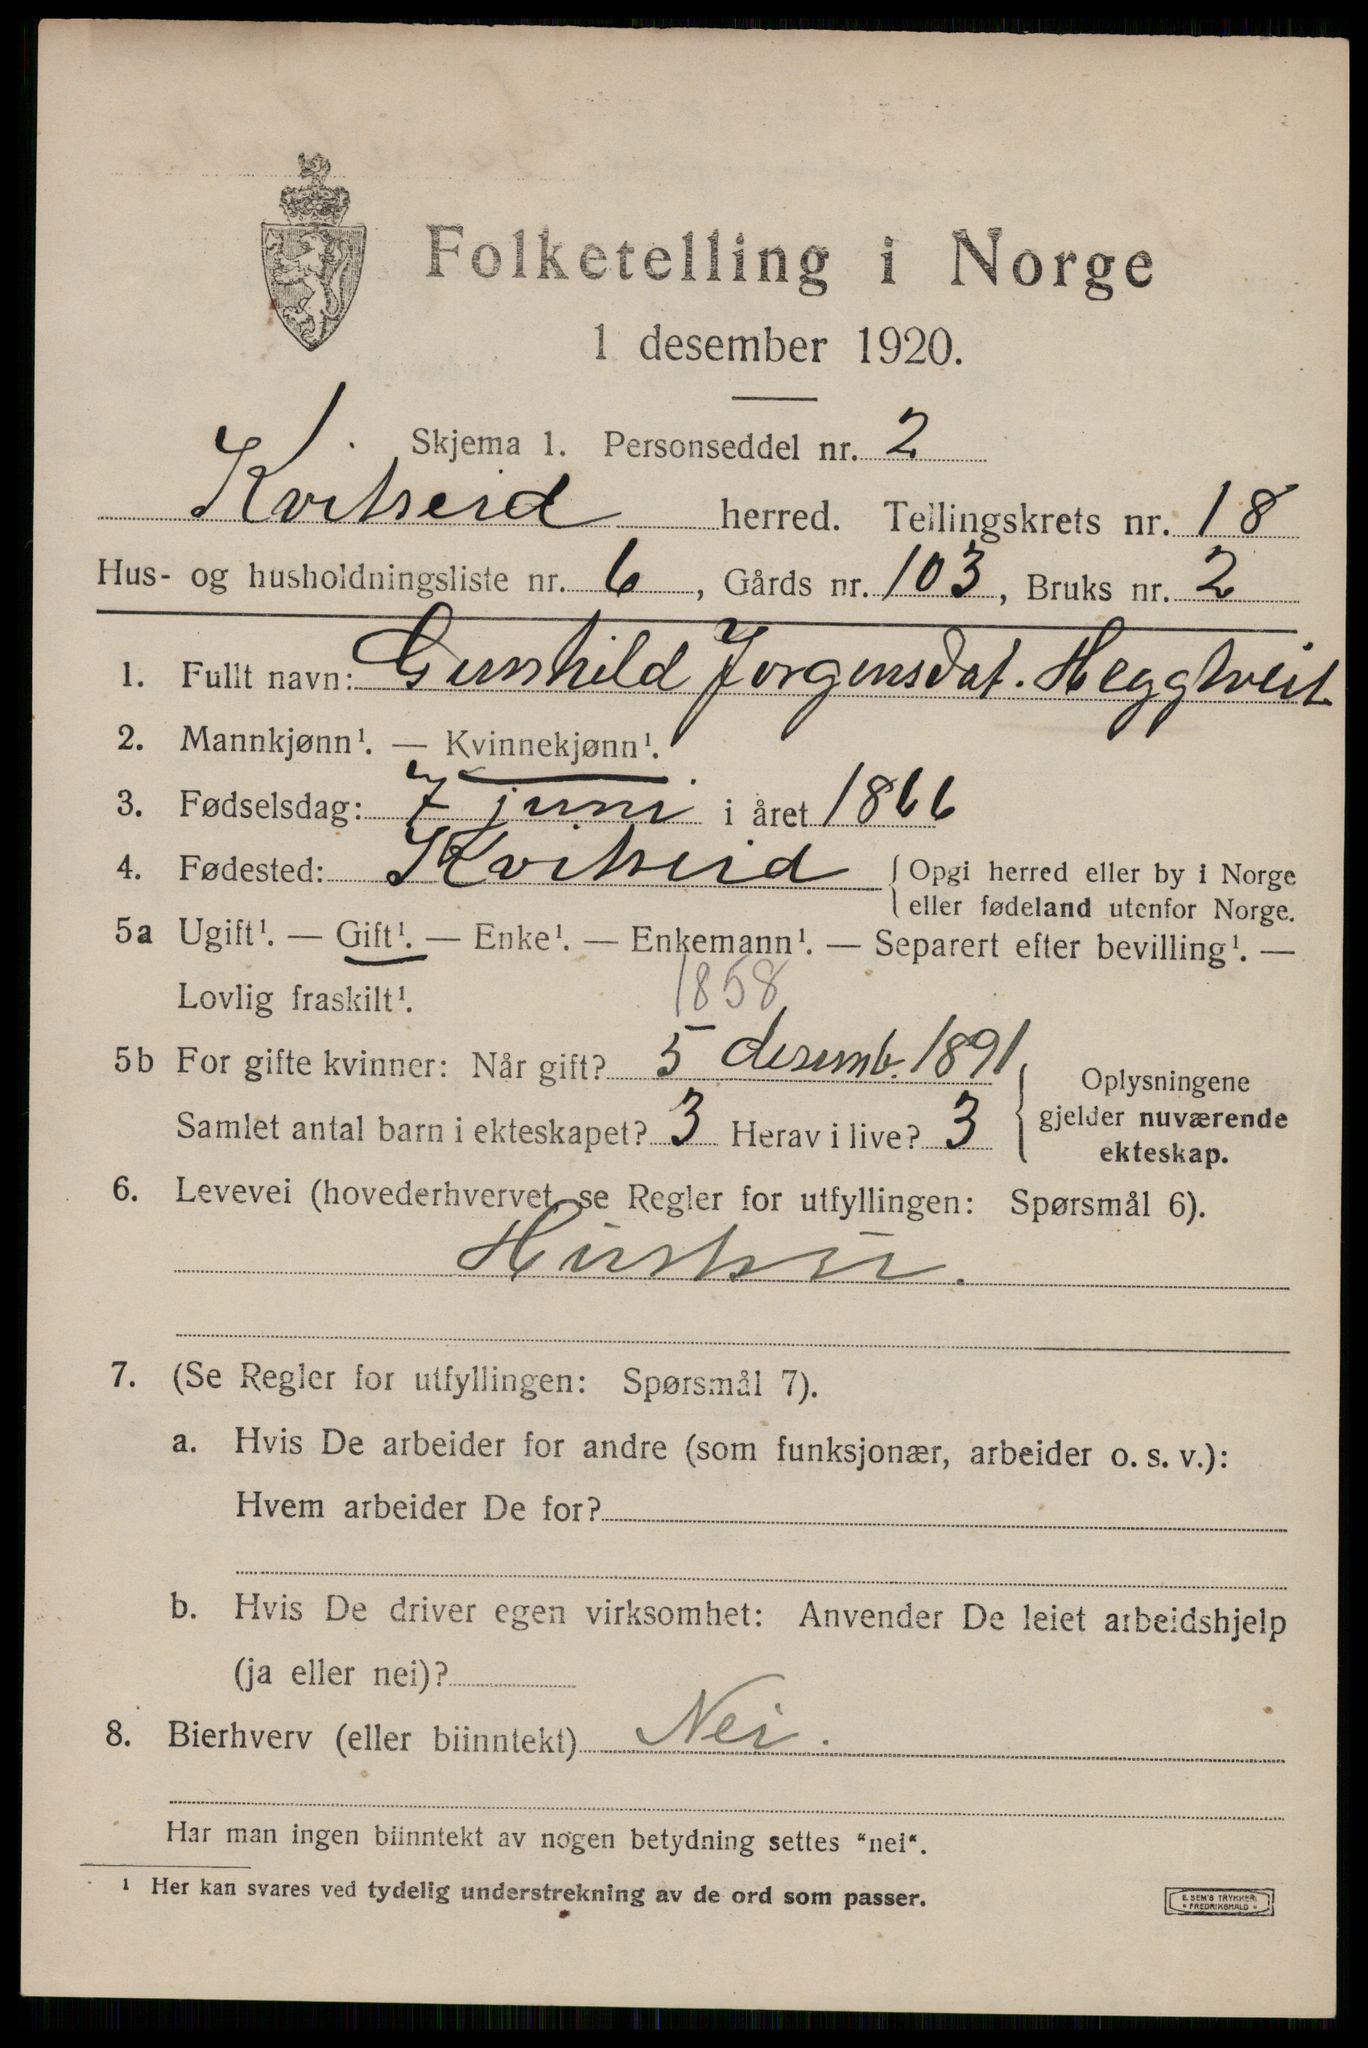 Folketelling i Norge
1 desember 1920.
Skjema 1. Personseddel nr. 2
Kvitseid herred. Tellingskrets nr. 18
Hus- og husholdningsliste nr. 6, Gårds nr. 103, Bruks nr. 2
1. Fullt navn: Gunhild Jorgensdat. Heggtveit
2. Mannkjønn¹. — Kvinnekjønn¹.
3. Fødselsdag: 7 juni i året 1866
4. Fødested: Kvitseid { Opgi herred eller by i Norge
eller fødeland utenfor Norge.
5a Ugift¹. — Gift¹. — Enke¹. — Enkemann¹. — Separert efter bevilling¹. —
Lovlig fraskilt¹. 1858
5b For gifte kvinner: Når gift? 5 desemb. 1891
Samlet antal barn i ekteskapet? 3 Herav i live? 3
Oplysningene
gjelder nuværende
ekteskap.
6. Levevei (hovederhvervet, se Regler for utfyllingen: Spørsmål 6).
Hustru.
7. (Se Regler for utfyllingen: Spørsmål 7).
a. Hvis De arbeider for andre (som funksjonær, arbeider o. s. v.):
Hvem arbeider De for?
b. Hvis De driver egen virksomhet: Anvender De leiet arbeidshjelp
(ja eller nei)?
8. Bierhverv (eller biinntekt) Nei.
Har man ingen biinntekt av nogen betydning settes "nei".
¹ Her kan svares ved tydelig understrekning av de ord som passer.
E. SEM'S TRYKKERI
* FREDRIKSHALD *